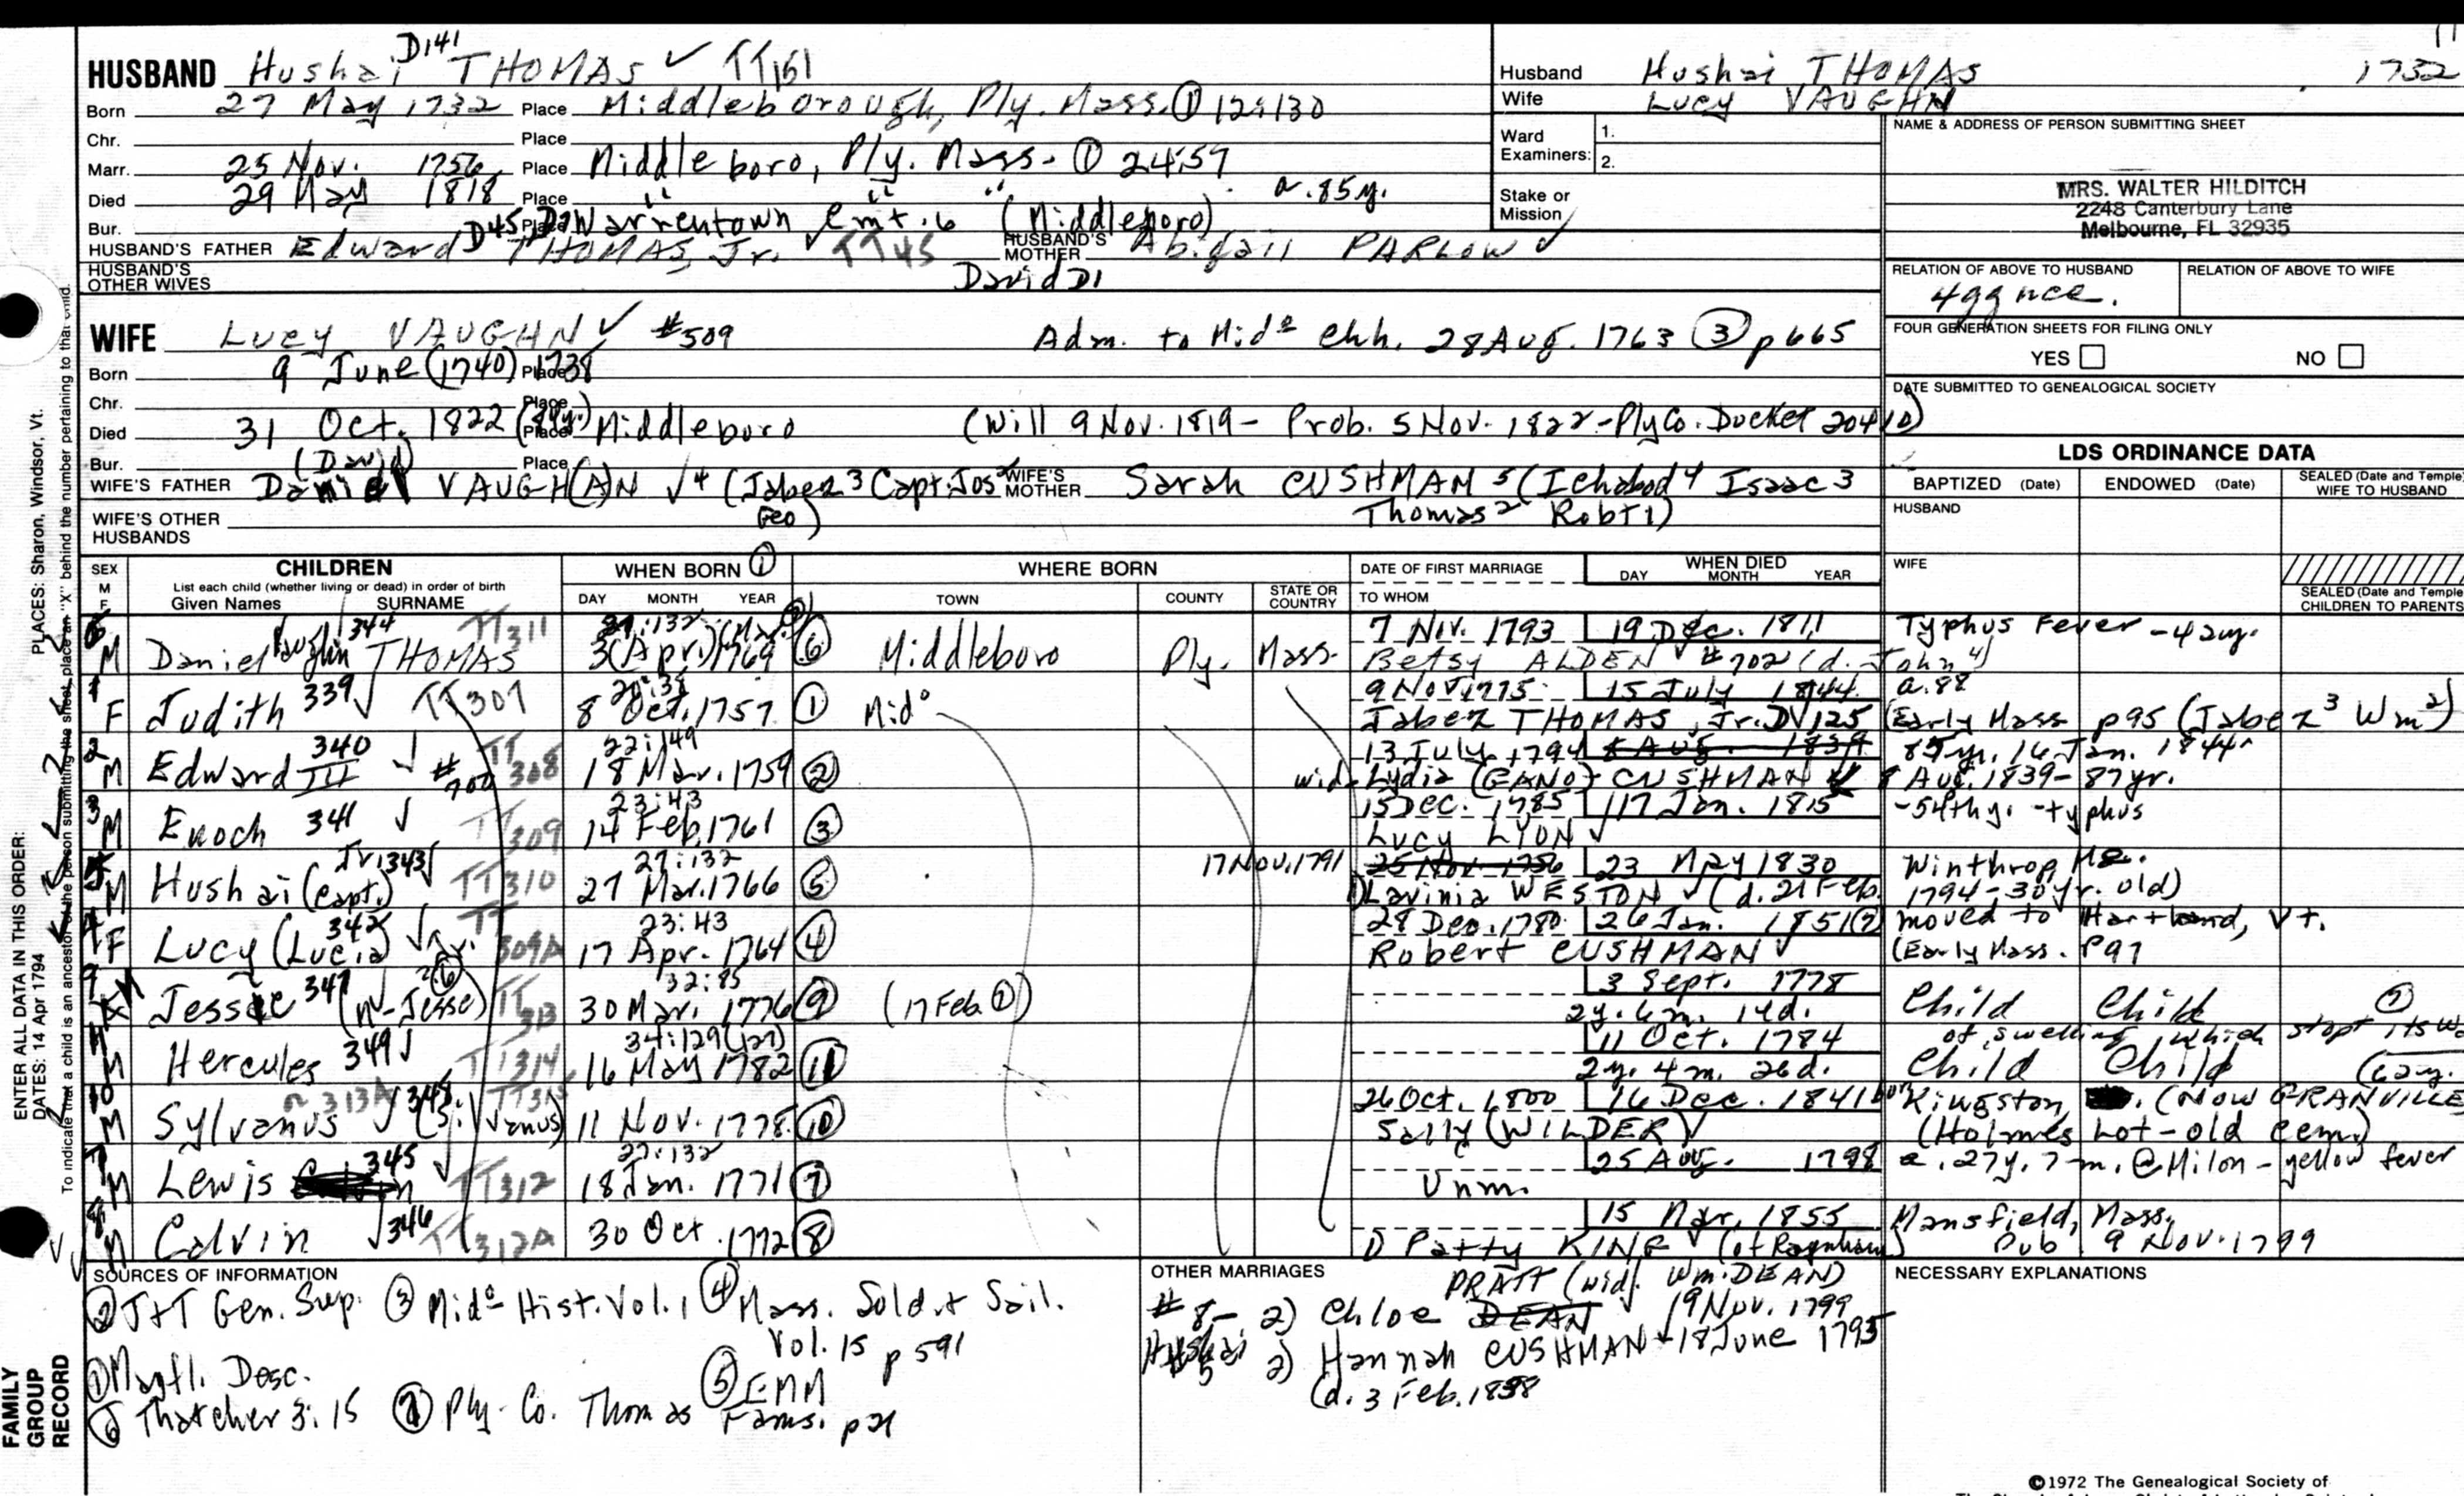 HUSBAND Hushai D141 THOMAS ✓ TT161
Born 27 May 1732 Place Middleborough, Ply. Mass. ① 12:130
Chr. Place
Marr. 25 Nov. 1756 Place Middleboro, Ply. Mass. ① 24:57
Died 29 May 1818 Place " " " a. 85y.
Bur. Place Warrentown Cmt. 6 (Middleboro)
HUSBAND'S FATHER Edward D45, THOMAS, Jr. TT45 HUSBAND'S MOTHER Abigail PARLOW ✓
HUSBAND'S OTHER WIVES David D1
Husband Hushai THOMAS 1732
Wife Lucy VAUGHN
Ward Examiners: 1.
2.
Stake or Mission
NAME & ADDRESS OF PERSON SUBMITTING SHEET
MRS. WALTER HILDITCH
2248 Canterbury Lane
Melbourne, FL 32935
RELATION OF ABOVE TO HUSBAND RELATION OF ABOVE TO WIFE
4gg nce.
FOUR GENERATION SHEETS FOR FILING ONLY
YES NO
DATE SUBMITTED TO GENEALOGICAL SOCIETY
WIFE Lucy VAUGHN ✓ #509 Adm. to Midº Chh. 28 Aug. 1763 ③ p665
Born 9 June (1740) 1738 Place
Chr. Place
Died 31 Oct. 1822 (84y.) Place Middleboro (Will 9 Nov. 1819 - Prob. 5 Nov. 1822 - Ply Co. Docket 20410)
Bur. (David) Place
WIFE'S FATHER Daniel VAUGH(A)N ✓4 (Jabez 3 Capt. Jos 2 Geo) WIFE'S MOTHER Sarah CUSHMAN 5 (Ichabod 4 Isaac 3
Thomas 2 Robt 1)
WIFE'S OTHER HUSBANDS
LDS ORDINANCE DATA
BAPTIZED (Date) ENDOWED (Date) SEALED (Date and Temple) WIFE TO HUSBAND
HUSBAND
WIFE
SEALED (Date and Temple) CHILDREN TO PARENTS
SEX M F CHILDREN List each child (whether living or dead) in order of birth Given Names SURNAME
WHEN BORN ① DAY MONTH YEAR
WHERE BORN TOWN COUNTY STATE OR COUNTRY
DATE OF FIRST MARRIAGE TO WHOM
WHEN DIED DAY MONTH YEAR
6 M Daniel Vaughn 344 THOMAS TT311 27:132 3 (Apr.) (Mar. 1769 ⑥ Middleboro Ply. Mass. 7 Nov. 1793 19 Dec. 1811 Typhus Fever - 42y.
Betsy ALDEN #702 (d. John 4)
1 F Judith 339 ✓ TT307 20:38 8 Oct. 1757 ① Midº 9 Nov 1775 15 July 1844 a. 88
Jabez THOMAS, Jr. D125 (Early Mass p95 (Jabez 3 Wm 2)
2 M Edward III 340 ✓ #700 TT308 22:149 18 Mar. 1759 ② 13 July 1794 8 Aug. 1839 85y. 16 Jan. 1844
wid. Lydia (GANO) CUSHMAN 8 Aug. 1839 - 87yr.
3 M Enoch 341 ✓ TT309 23:43 14 Feb. 1761 ③ 15 Dec. 1785 17 Jan. 1815 - 54thy. - typhus
Lucy LYON ✓
5 M Hushai (Capt.) Jr. 343 TT310 27:132 27 Mar. 1766 ⑤ 17 Nov. 1791 25 Nov 1756 23 May 1830 Winthrop Me.
1) Lavinia WESTON ✓ (d. 21 Feb. 1794 - 30 yr. old)
4 F Lucy (Lucia) 342 ✓ TT 309A 23:43 17 Apr. 1764 ④ 28 Dec. 1780 26 Jan. 1851(?) moved to Hartland, Vt.
Robert CUSHMAN ✓ (Early Mass. p97
9 M Jesse 347 (m-Jesse) TT313 32:85 30 Mar. 1776 ⑨ (17 Feb ①) 3 Sept. 1778 Child Child ⑦
2y. 6m. 14d. of swelling which stopt its
11 M Hercules 349 ✓ TT314 34:129 (127) 16 May 1782 ⑪ 11 Oct. 1784
2y. 4m. 26d. Child Child
10 M Sylvanus ✓ 348 (Silvanus) 313A 11 Nov. 1778 ⑩ 26 Oct. 1800 16 Dec. 1841 Kingston (Now GRANVILLE
Sally (WILDER) ✓ (Holmes Lot - old Cem.)
7 M Lewis 345 ✓ TT312 27:132 18 Jan. 1771 ⑦ 25 Aug. 1798 a. 27y. 7m. @ Milon - yellow fever
Unm.
8 M Calvin ✓ 346 TT312A 30 Oct. 1772 ⑧ 15 Mar. 1855 Mansfield, Mass.
1) Patty KING (of Raynham) Pub 9 Nov. 1799
SOURCES OF INFORMATION
② T+T Gen. Sup. ③ Midº Hist. Vol. 1 ④ Mass. Sold. & Sail.
Vol. 15 p 591
① Mayfl. Desc. ⑤ EMM
⑥ Thatcher 3:15 ⑦ Ply. Co. Thomas Fams. p 21
OTHER MARRIAGES PRATT (wid. Wm. DEAN)
#8 - 2) Chloe DEAN 19 Nov. 1799
Hushai #5 2) Hannah CUSHMAN - 18 June 1795
(d. 3 Feb. 1838
NECESSARY EXPLANATIONS
©1972 The Genealogical Society of
FAMILY GROUP RECORD
ENTER ALL DATA IN THIS ORDER:
DATES: 14 Apr 1794 PLACES: Sharon, Windsor, Vt.
To indicate that a child is an ancestor of the person submitting the sheet, place an "X" behind the number pertaining to that child.